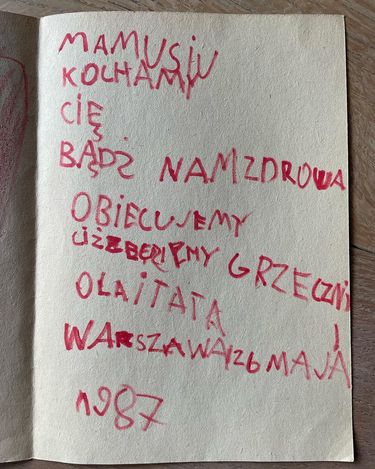 MAMUSIU
KOCHAMY
CIĘ
BĄDŹ NAM ZDROWA
OBIECUJEMY
CI ŻE BĘDZIEMY GRZECZNI
OLA I TATA
WARSZAWA, 26 MAJA
1987